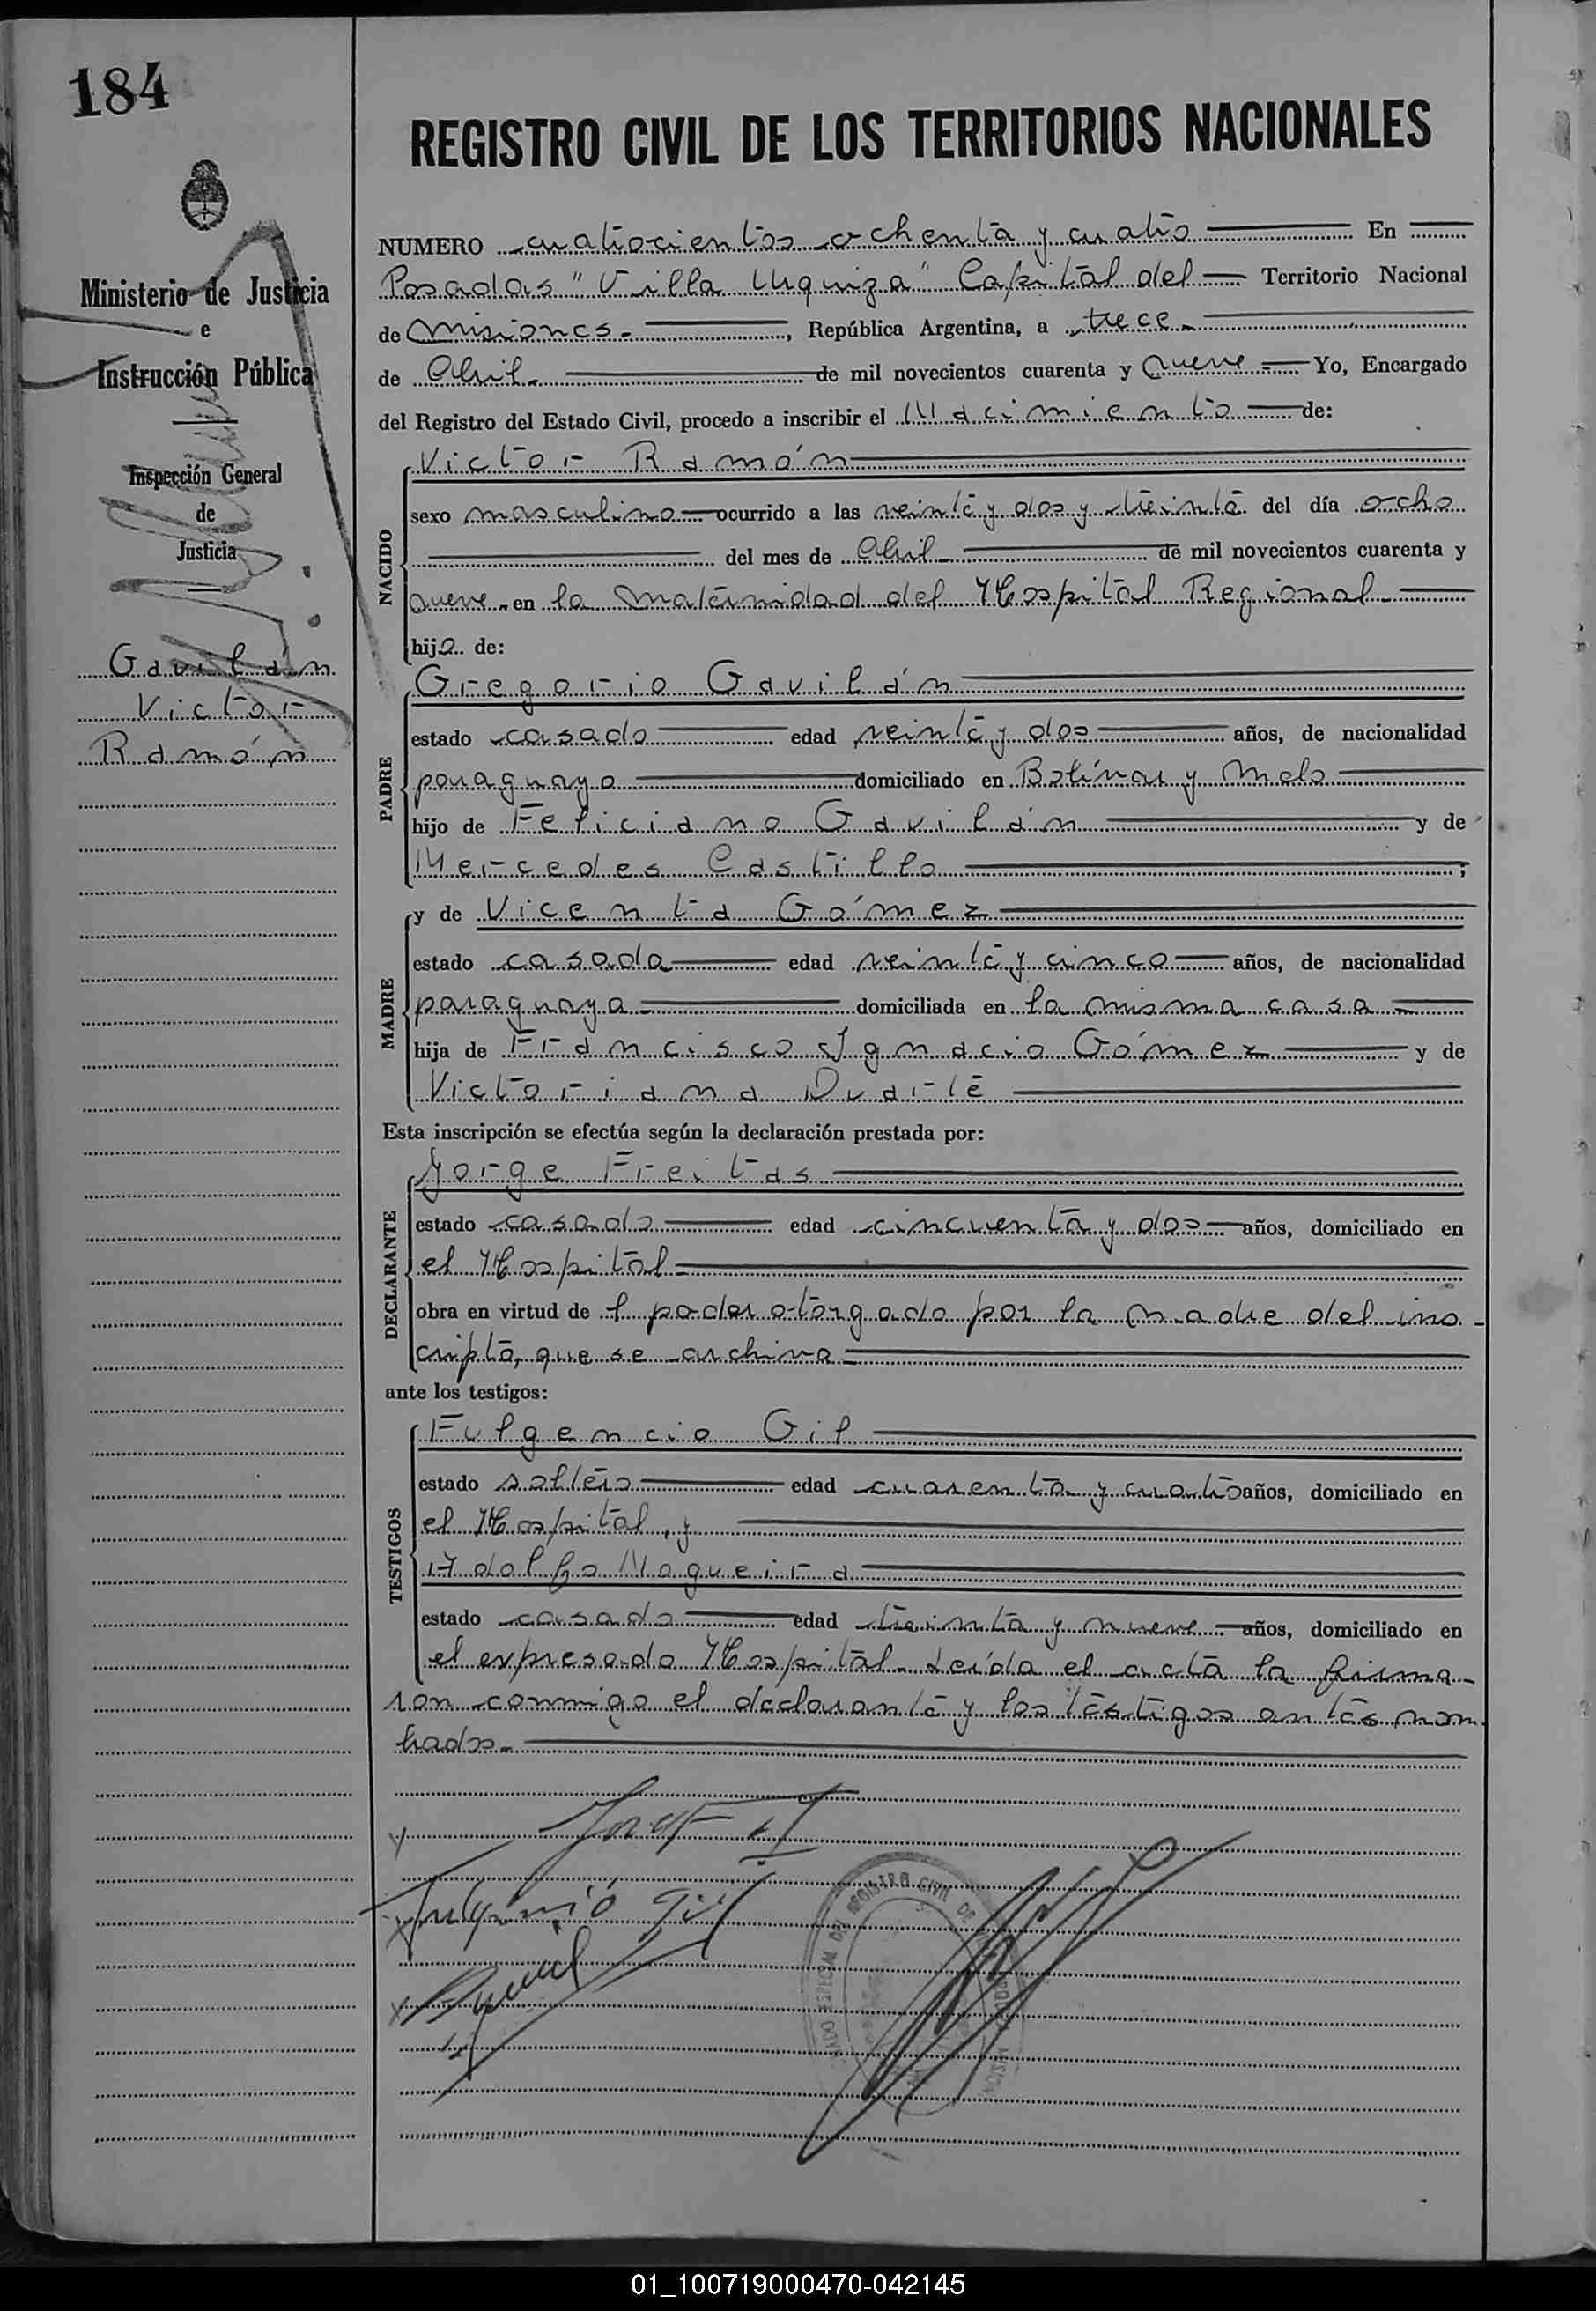 184
REGISTRO CIVIL DE LOS TERRITORIOS NACIONALES
Ministerio de Justicia
e
Instrucción Pública
Inspección General
de
Justicia
Gavilán
Victor
Ramón
NUMERO cuatrocientos ochenta y cuatro En
Posadas "Villa Urquiza" Capital del Territorio Nacional
de Misiones, República Argentina, a trece
de Abril de mil novecientos cuarenta y nueve Yo, Encargado
del Registro del Estado Civil, procedo a inscribir el Nacimiento de:
NACIDO
Victor Ramón
sexo masculino ocurrido a las veinte y dos y treinta del día ocho
del mes de Abril de mil novecientos cuarenta y
nueve en la Maternidad del Hospital Regional
hijo de:
PADRE
Gregorio Gavilán
estado casado edad veinte y dos años, de nacionalidad
paraguayo domiciliado en Bolívar y Melo
hijo de Feliciano Gavilán y de
Mercedes Castillo;
MADRE
y de Vicenta Gómez
estado casada edad veinte y cinco años, de nacionalidad
paraguaya domiciliada en la misma casa
hija de Francisco Ignacio Gómez y de
Victoriana Duarte
Esta inscripción se efectúa según la declaración prestada por:
DECLARANTE
Jorge Freitas
estado casado edad cincuenta y dos años, domiciliado en
el Hospital
obra en virtud del poder otorgado por la madre del ins-
cripto, que se archiva
ante los testigos:
TESTIGOS
Fulgencio Gil
estado soltero edad cuarenta y cuatro años, domiciliado en
el Hospital, y
Adolfo Nogueira
estado casado edad treinta y nueve años, domiciliado en
el expresado Hospital. Leída el acta la firma-
ron conmigo el declarante y los testigos antes nom-
brados.
Fulgencio Gil
REGISTRO CIVIL DE
ESPECIAL DEL
01_100719000470-042145